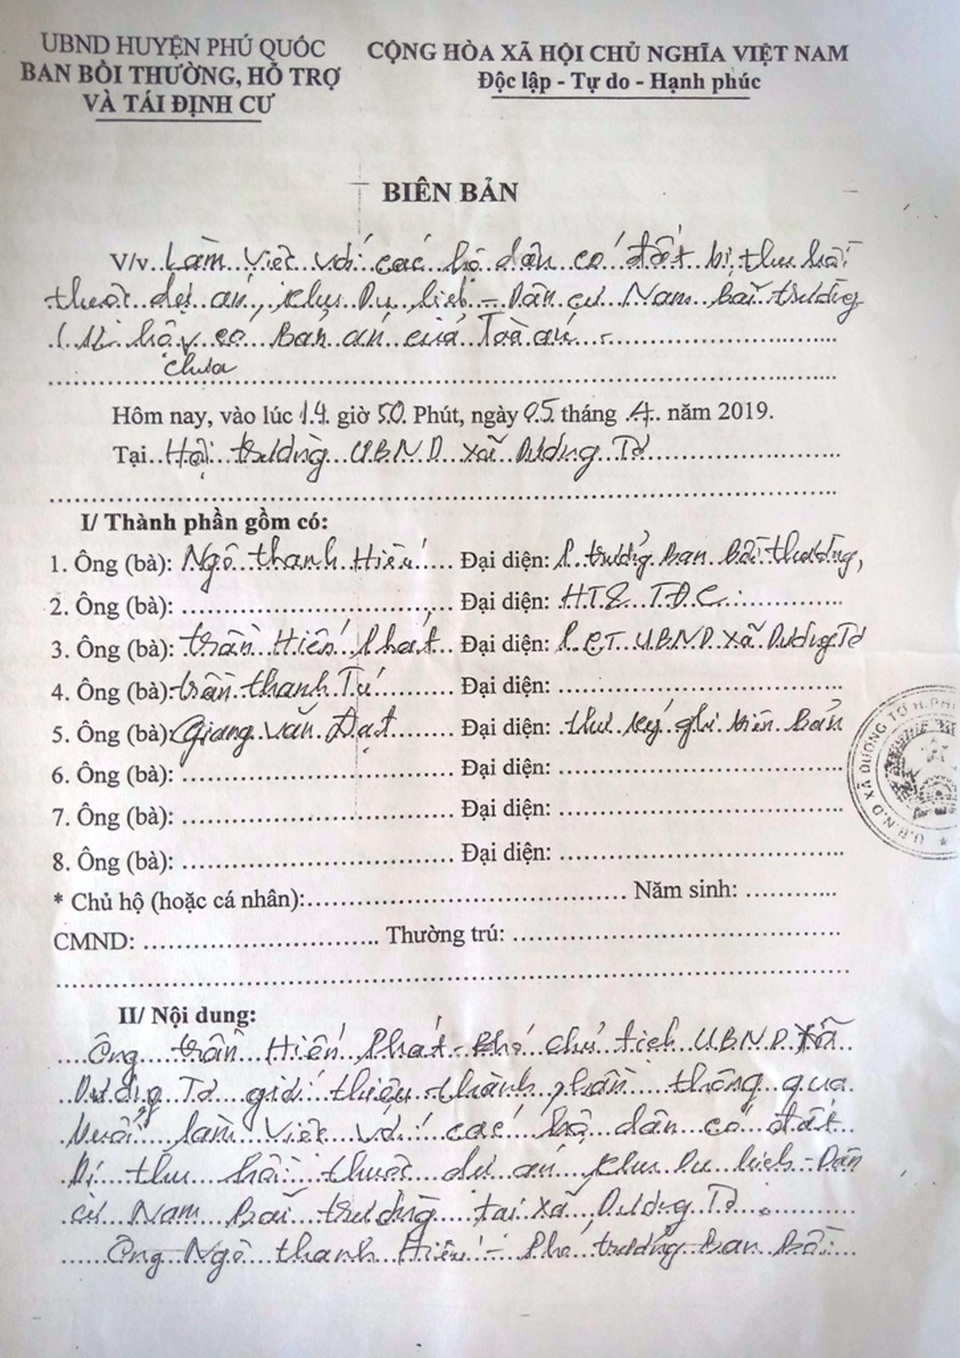 UBND HUYỆN PHÚ QUỐC
BAN BỒI THƯỜNG, HỖ TRỢ
VÀ TÁI ĐỊNH CƯ
CỘNG HÒA XÃ HỘI CHỦ NGHĨA VIỆT NAM
Độc lập - Tự do - Hạnh phúc
BIÊN BẢN
V/v Làm việc với các hộ dân có đất bị thu hồi
thuộc dự án, khu Du lịch - Dân cư Nam bãi trường
hộ có Bản án của Toà án
chưa
Hôm nay, vào lúc 14 giờ 50 Phút, ngày 05 tháng 4 năm 2019.
Tại Hội trường UBND xã Dương Tơ
I/ Thành phần gồm có:
1. Ông (bà): Ngô thanh Hiếu Đại diện: P. trưởng Ban bồi thường,
2. Ông (bà): Đại diện: HT& TĐC
3. Ông (bà): trần Hiến Phát Đại diện: P.CT.UBND xã Dương Tơ
4. Ông (bà): trần thanh Tú Đại diện:
5. Ông (bà): Giang văn Đạt Đại diện: thư ký ghi biên Bản
6. Ông (bà): Đại diện:
7. Ông (bà): Đại diện:
8. Ông (bà): Đại diện:
* Chủ hộ (hoặc cá nhân): Năm sinh:
CMND: Thường trú:
U.B.N.D XÃ DƯƠNG TƠ H.PH
II/ Nội dung:
Ông trần Hiến Phát - Phó chủ tịch UBND Xã
Dương Tơ giới thiệu thành phần thông qua
buổi làm việc với các hộ dân có đất
bị thu hồi thuộc dự án khu Du lịch - Dân
cư Nam Bãi trường tại xã Dương Tơ
Ông Ngô thanh Hiếu - Phó trưởng Ban Bồi